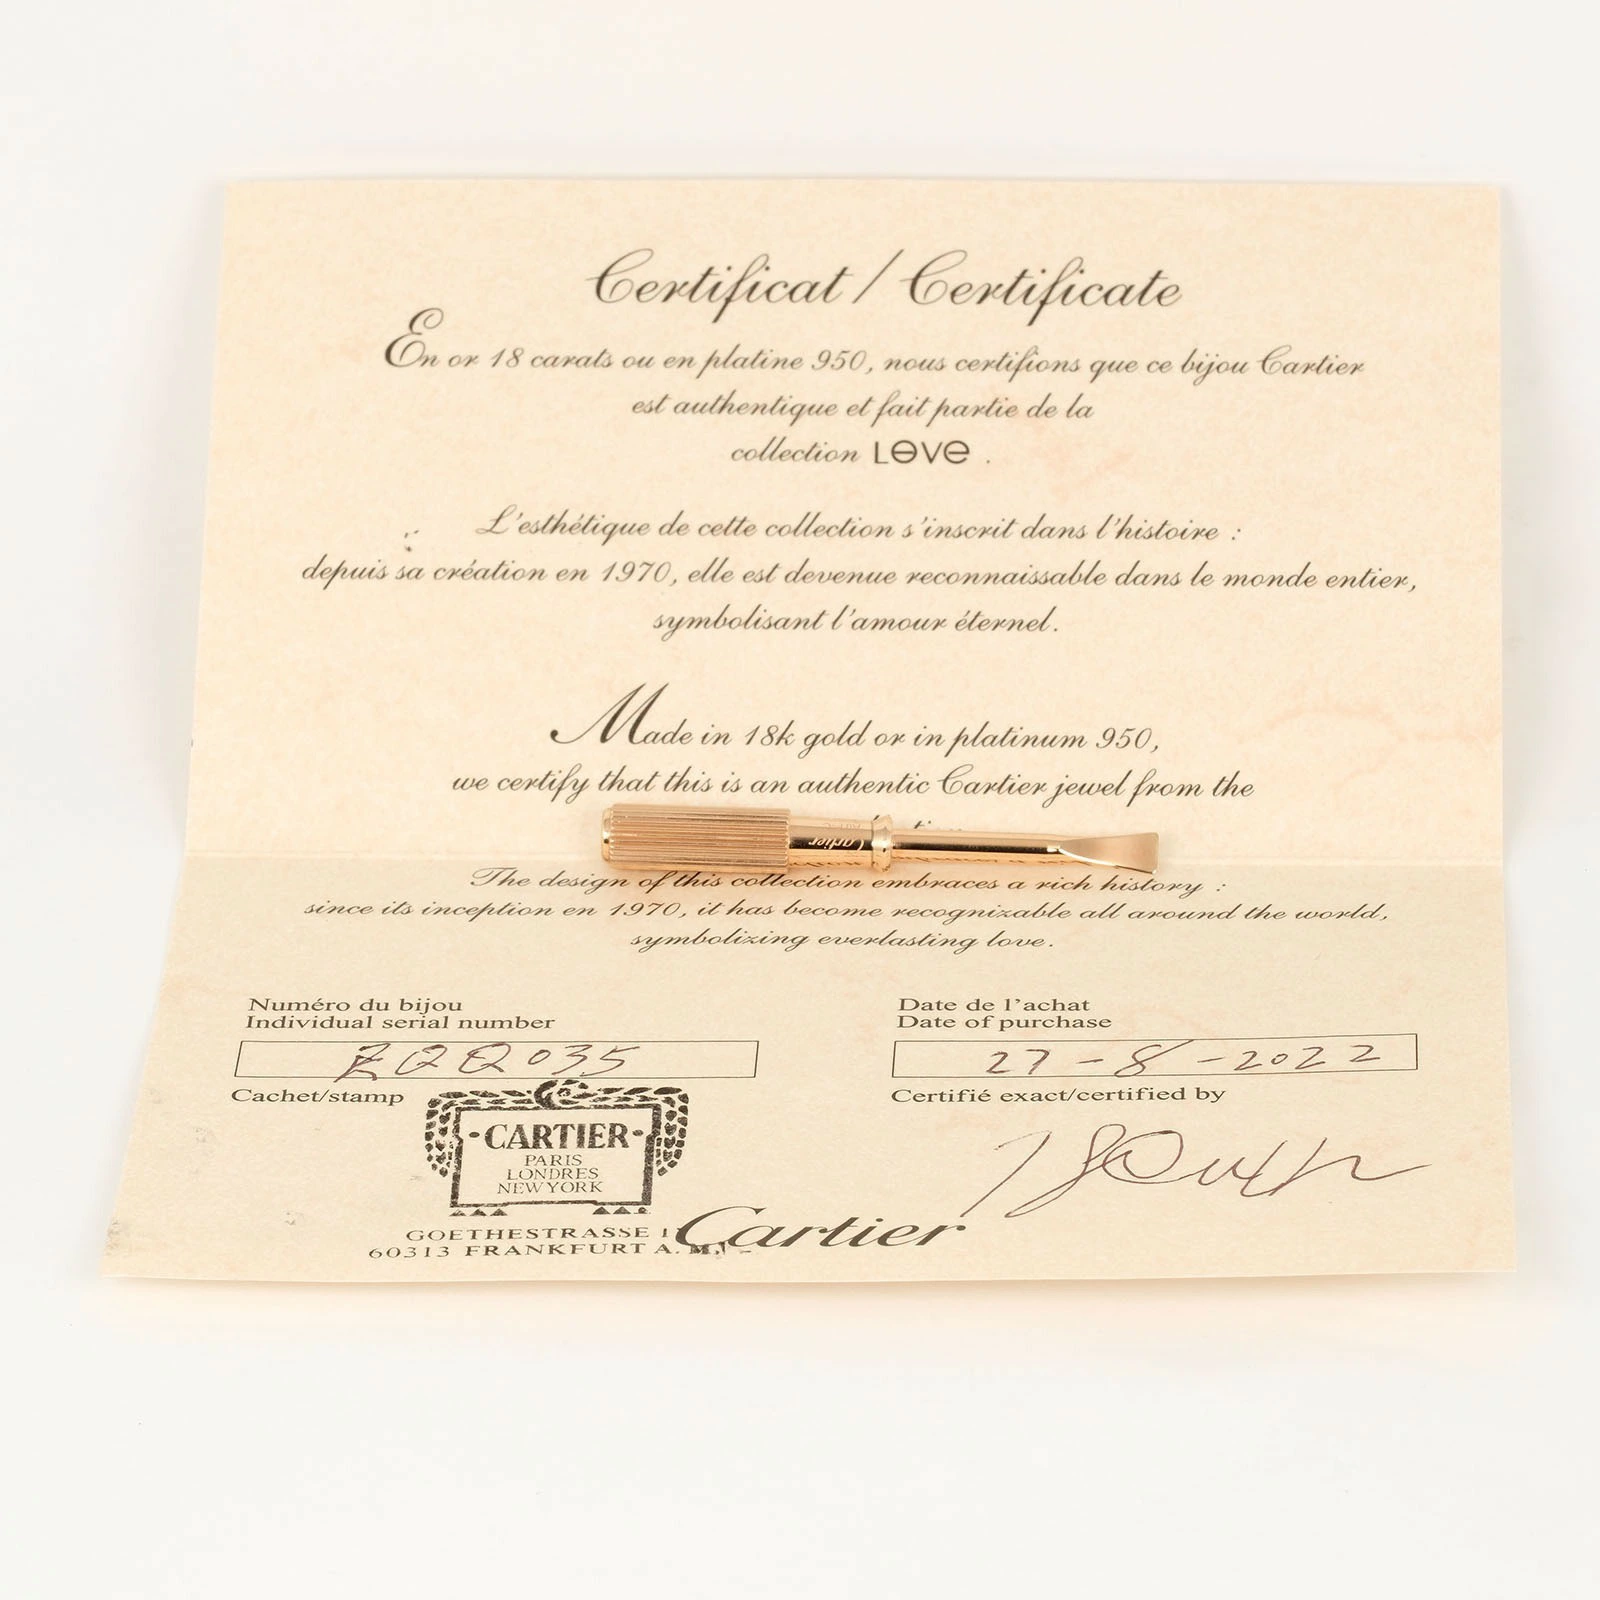 Certificat / Certificate
En or 18 carats ou en platine 950, nous certifions que ce bijou Cartier
est authentique et fait partie de la
collection LOVE .
L'esthétique de cette collection s'inscrit dans l'histoire :
depuis sa création en 1970, elle est devenue reconnaissable dans le monde entier,
symbolisant l'amour éternel.
Made in 18k gold or in platinum 950,
we certify that this is an authentic Cartier jewel from the
Cartier
The design of this collection embraces a rich history :
since its inception en 1970, it has become recognizable all around the world,
symbolizing everlasting love.
Numéro du bijou
Individual serial number
ZQQ035
Cachet/stamp
CARTIER
PARIS
LONDRES
NEW YORK
GOETHESTRASSE
60313 FRANKFURT A. M.
Date de l'achat
Date of purchase
27-8-2022
Certifié exact/certified by
Cartier